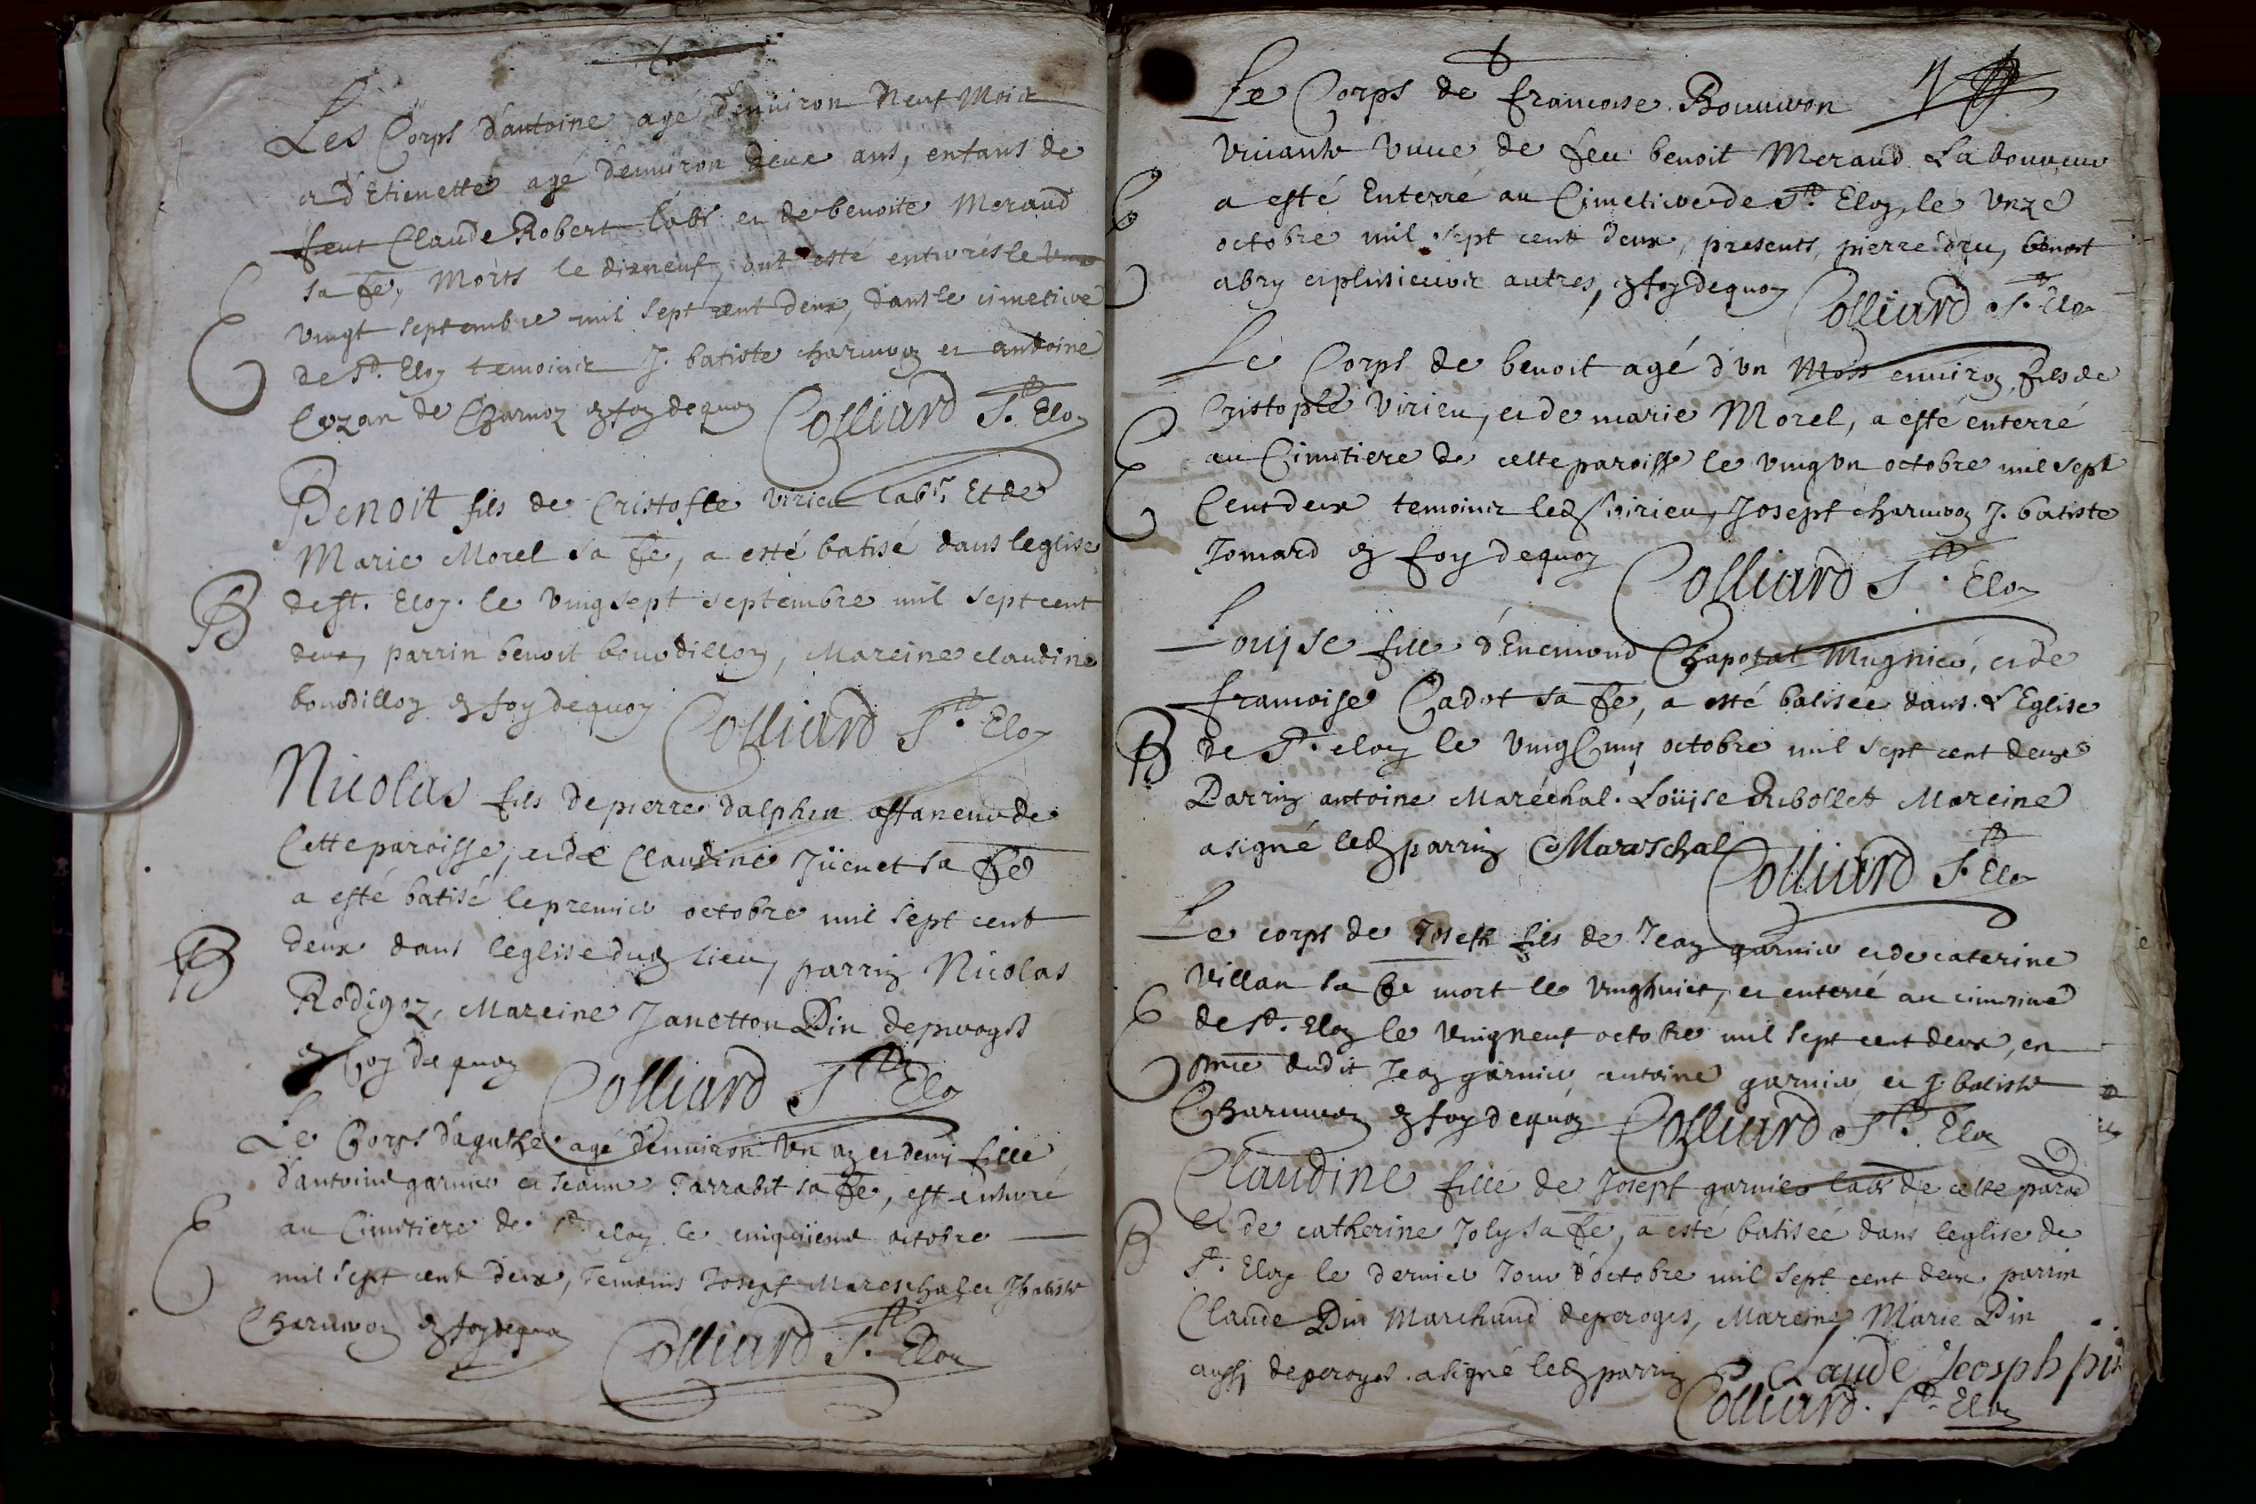 Les Corps d'antoine agé d'enuiron neuf Mois
et d'Etienette agé d'enuiron deux ans, enfans de
feut Claude Robert labr et de benoite Meraud
sa fe, Morts le dixneuf, ont esté enterrés le
vingt septembre mil sept cent deux, dans le cimetiere
de St. Eloy temoins J. batiste charuoz et antoine
Cozan de Charnoz en foy dequoy Colliard St. Eloy
Benoit fils de Cristofle Virieu labr. Et de
Marie Morel sa fe, a esté batisé dans leglise
de st. Eloy. le vingsept septembre mil sept cent
deux, parrin benoit bourdillon, Mareine claudine
bourdillon en foy dequoy Colliard St. Eloy
Nicolas fils de pierre dalphin affaneur de
Cette paroisse, et de Claudine Jüenet sa fe
a esté batisé le premier octobre mil sept cent
deux dans leglise dud lieu, parrin Nicolas
Rodigoz, Mareine Janetton Din de peroges
en foy de quoy Colliard St. Eloy
Le Corps d'agathe agé d'enuiron un an et demi fille
d'antoine garnier et Jeanne Tarrabit sa fe, est enterré
au Cimitiere de St. eloy le cinquieme octobre
mil sept cent deux, Temoins Joseph Mareschal et J batiste
Charuoz en foy dequoy Colliard St. Eloy
Le Corps de francoise
viuante veuue de feu benoit Meraud Laboureur
a esté Enterré au Cimetiere de St. Eloy, le unze
octobre mil sept cent deux, presents, pierre dru, benoit
abry et plusieurs autres, en foy dequoy Colliard St. Eloy
Le Corps de benoit agé d'un Mois enuiron, fils de
Cristople Virieu, et de marie Morel, a esté enterré
au Cimitiere de cette paroisse le vingt un octobre mil sept
Cent deux temoins led Virieu, Joseph charuoz J. batiste
Jomard en foy dequoy Colliard St. Eloy
Louise fille d'Enemond Chapotat Mugnier, et de
francoise Cadot sa fe, a esté batisée dans L'Eglise
de St. eloy le vingt cinq octobre mil sept cent deux
Parrin antoine Maréchal. Loüise Ribollet Mareine
a signé led parrin A Maraschal Colliard St Eloy
Le corps de Joseph fils de Jean garnier et de caterine
Villan sa fe mort le vinghuict, et enterré au cimitiere
de St. Eloy le vingneuf octobre mil sept cent deux, en
pnce dudit Jean garnier, antoine garnier et J. batiste
Charuoz en foy dequoy Colliard St. Eloy
Claudine fille de Joseph garnier labr de cette paroisse
Et de catherine Joly sa fe, a esté batisée dans leglise de
St. Eloy le dernier Jour d'octobre mil sept cent deux parrin
Claude Din Marchand de peroges, Mareine, Marie Din
aussi de peroges. a signé led parrin Claude Jeosph pin
Colliard. St. Eloy